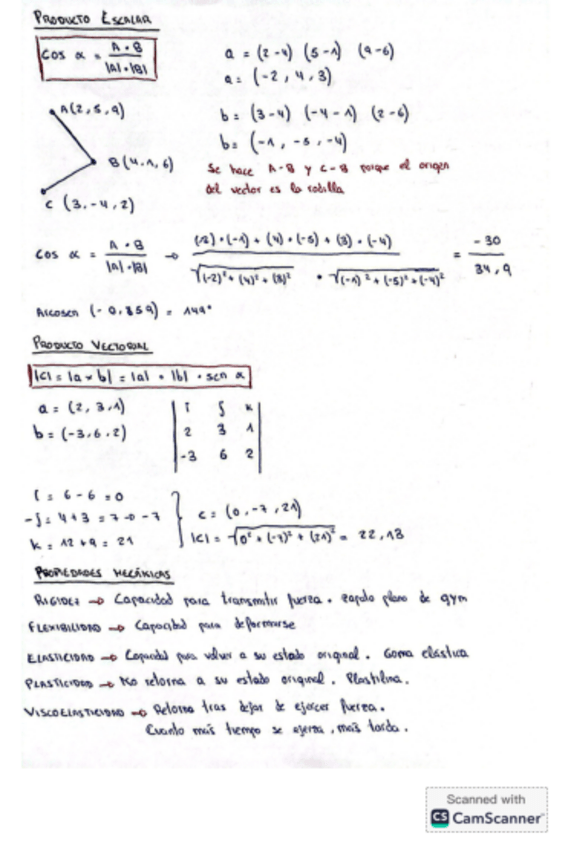 PRODUCTO ESCALAR
cos α = A • B / |A| • |B|
a = (2-4) (5-1) (9-6)
a = (-2, 4, 3)
A (2, 5, 9)
b = (3-4) (-4-1) (2-6)
b = (-1, -5, -4)
B (4, 1, 6)
Se hace A-B y C-B porque el origen
del vector es la rodilla
C (3, -4, 2)
cos α = A • B / |A| • |B| → (-2) • (-1) + (4) • (-5) + (3) • (-4) / √(-2)² + (4)² + (3)² • √(-1)² + (-5)² + (-4)² = -30 / 34,9
Arcosen (-0,859) = 149°
PRODUCTO VECTORIAL
|c| = |a × b| = |a| • |b| • sen α
a = (2, 3, 1)
b = (-3, 6, 2)
i j k
2 3 1
-3 6 2
i = 6 - 6 = 0
-j = 4 + 3 = 7 → -7
k = 12 + 9 = 21
c = (0, -7, 21)
|c| = √0² + (-7)² + (21)² = 22,13
PROPIEDADES MECÁNICAS
RIGIDEZ → Capacidad para transmitir fuerza. Zapato plano de gym
FLEXIBILIDAD → Capacidad para deformarse
ELASTICIDAD → Capacidad para volver a su estado original. Goma elástica
PLASTICIDAD → No retorna a su estado original. Plastilina.
VISCOELASTICIDAD → Retorna tras dejar de ejercer fuerza.
Cuanto más tiempo se ejerza, más tarda.
Scanned with
CS CamScanner